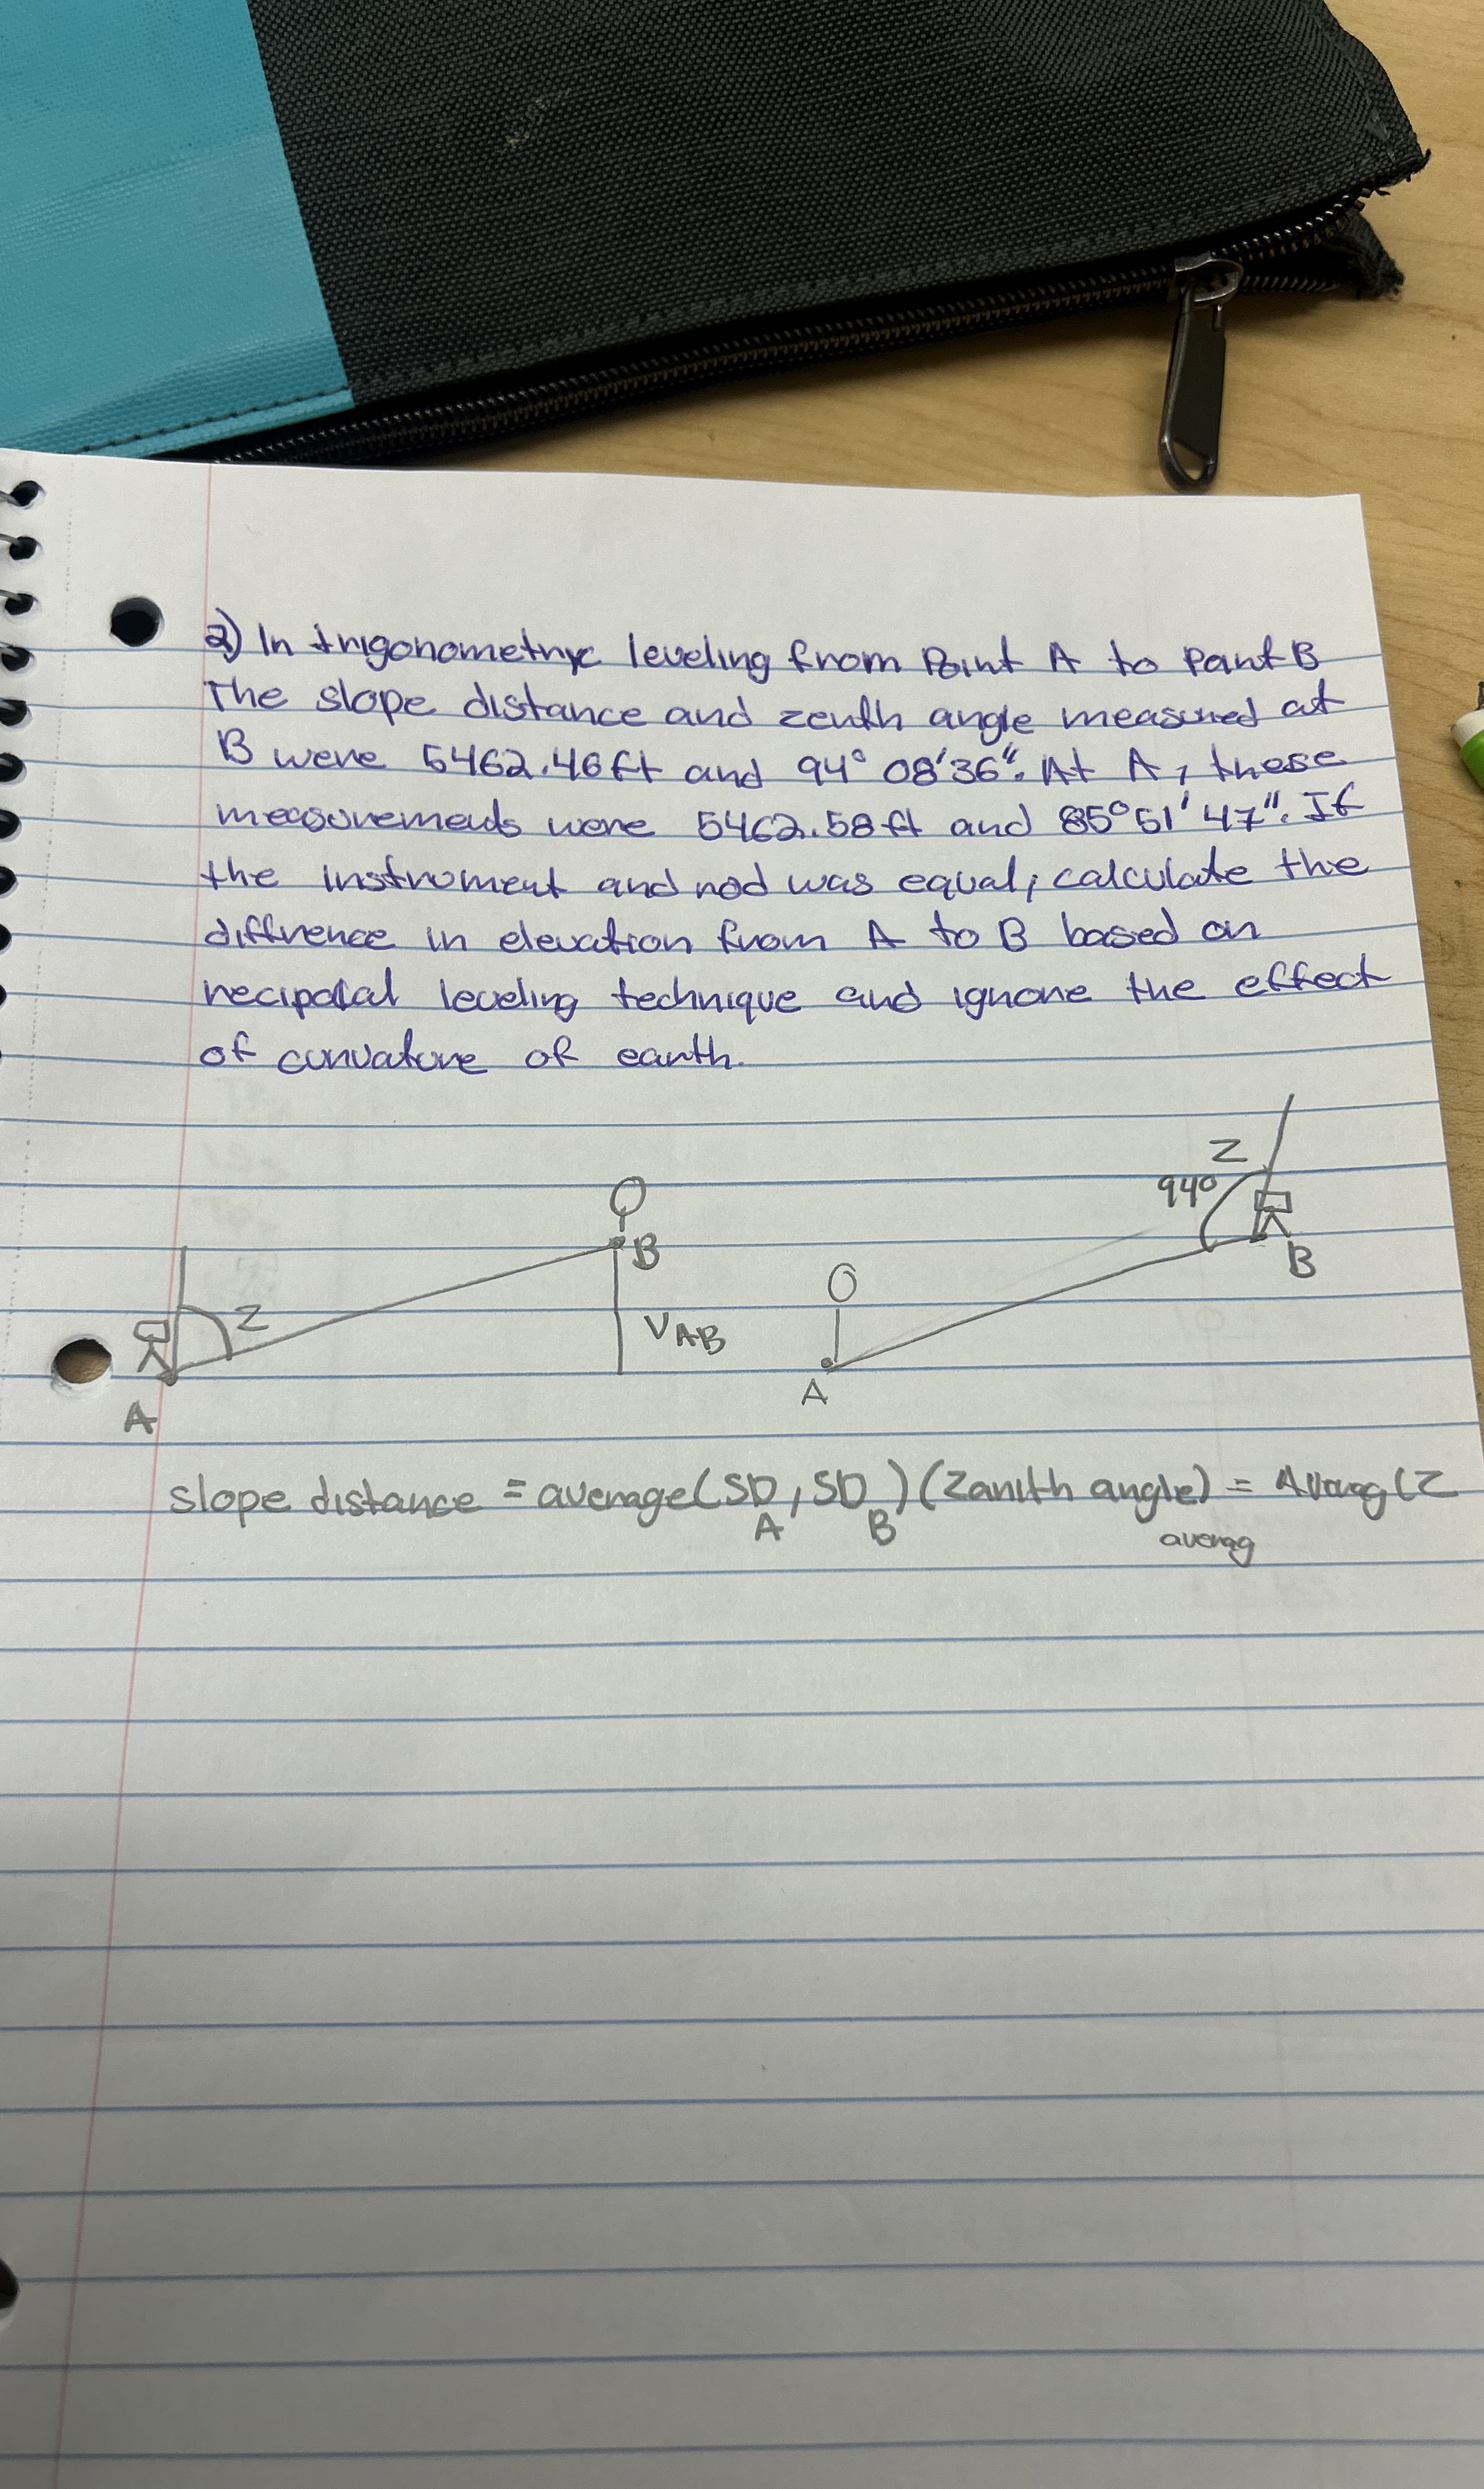 2) In trigonometryc leveling from Point A to Point B
The slope distance and zenith angle measured at
B were 5462.46ft and 94° 08'36". At A, these
measurements were 5462.58ft and 85°51'47". If
the instrument and rod was equal, calculate the
diffrence in elevation from A to B based on
reciporal leveling technique and ignore the effect
of curvature of earth.
Z
94°
B
B
Z
VAB
A
A
slope distance = average(SD_A, SD_B)(Zanith angle) = Averag(Z
averag